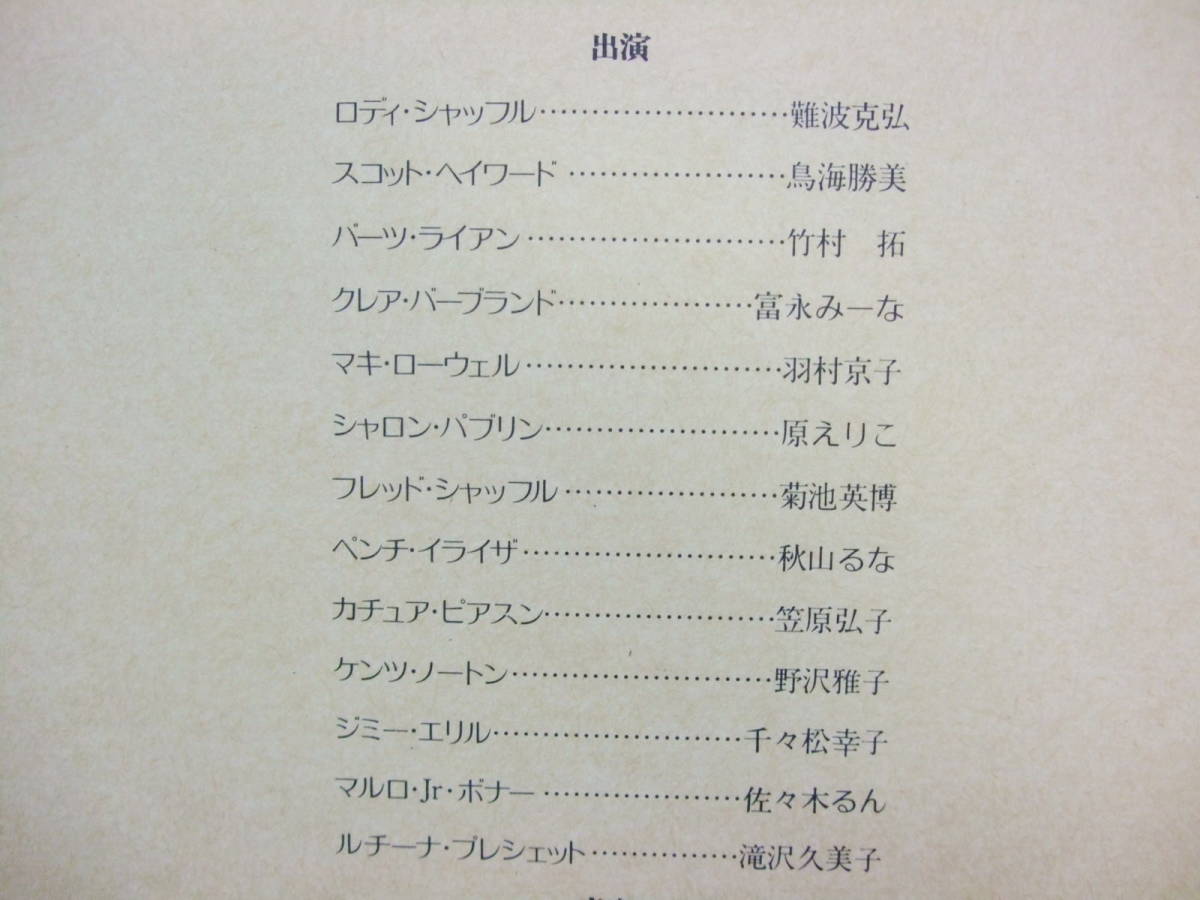 出演
ロディ・シャッフル……………………難波克弘
スコット・ヘイワード…………………鳥海勝美
バーツ・ライアン……………………竹村　拓
クレア・バーブランド………………富永みーな
マキ・ローウェル……………………羽村京子
シャロン・パブリン…………………原えりこ
フレッド・シャッフル………………菊池英博
ペンチ・イライザ……………………秋山るな
カチュア・ピアスン…………………笠原弘子
ケンツ・ノートン……………………野沢雅子
ジミー・エリル……………………千々松幸子
マルロ・Jr・ボナー………………佐々木るん
ルチーナ・プレシェット…………滝沢久美子